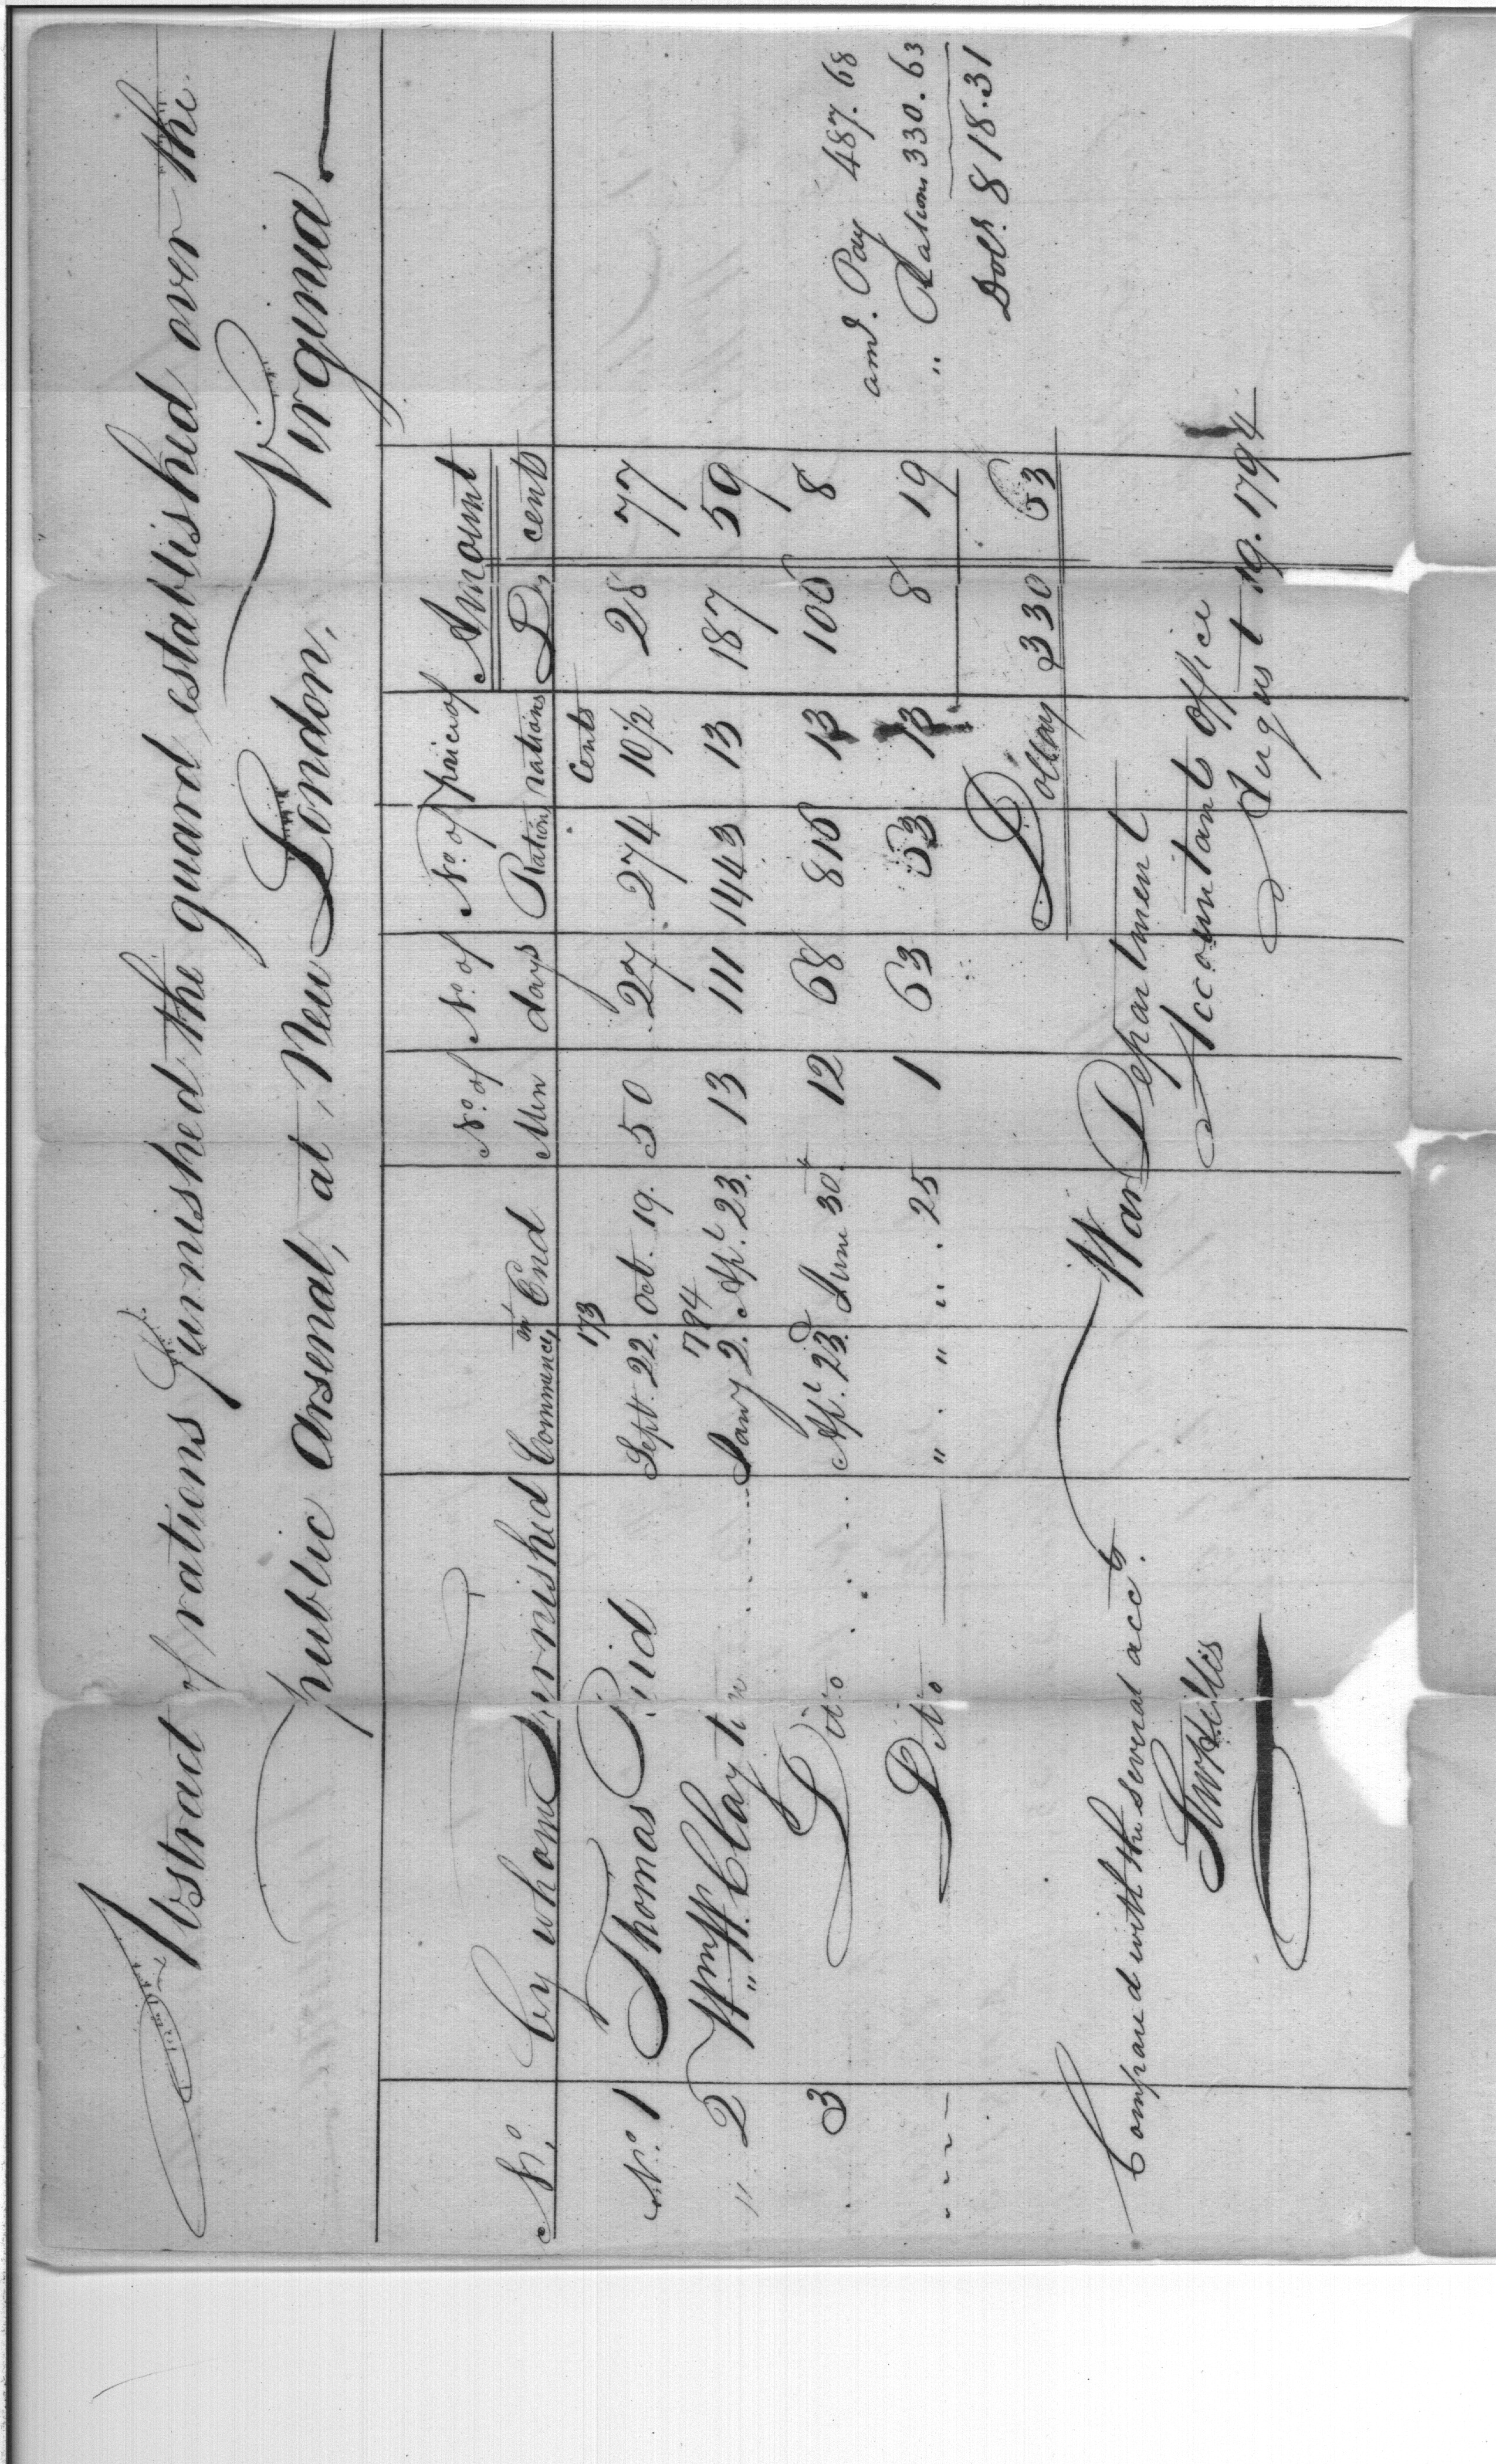 Abstract of rations furnished the guard established over the
public Arsenal, at New London, Virginia.
No. By whom Furnished Commencemt End No. of Men No. of days No. of Rations price of rations Amount D. cents
173 Cents
No. 1 Thomas Reid Sept. 22. Oct. 19. 50 27 274 10 1/2 28 77
794
" 2 Wm. H. Clayton Jany 2. Apl. 23. 13 111 1443 13 187 59
3 Ditto Apl. 23d June 30t 12 68 816 13 106 8
Ditto " " " . 25 1 63 63 13 8 19
Dollars 330 63
amt. Pay 487.68
" Rations 330.63
Dolls. 818.31
Compared with the several accts.
War Department
Accountants office
August 19. 1794